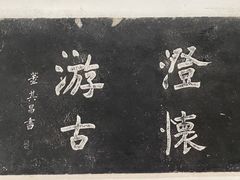 澄懷
游古
董其昌書